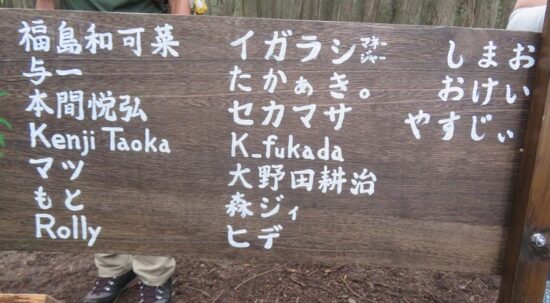 福島和可菜
与一
本間悦弘
Kenji Taoka
マツ
もと
Rolly
イガラシマネージャー
たかぁき。
セカマサ
K_fukada
大野田耕治
森ジィ
ヒデ
しまお
おけい
やすじぃ